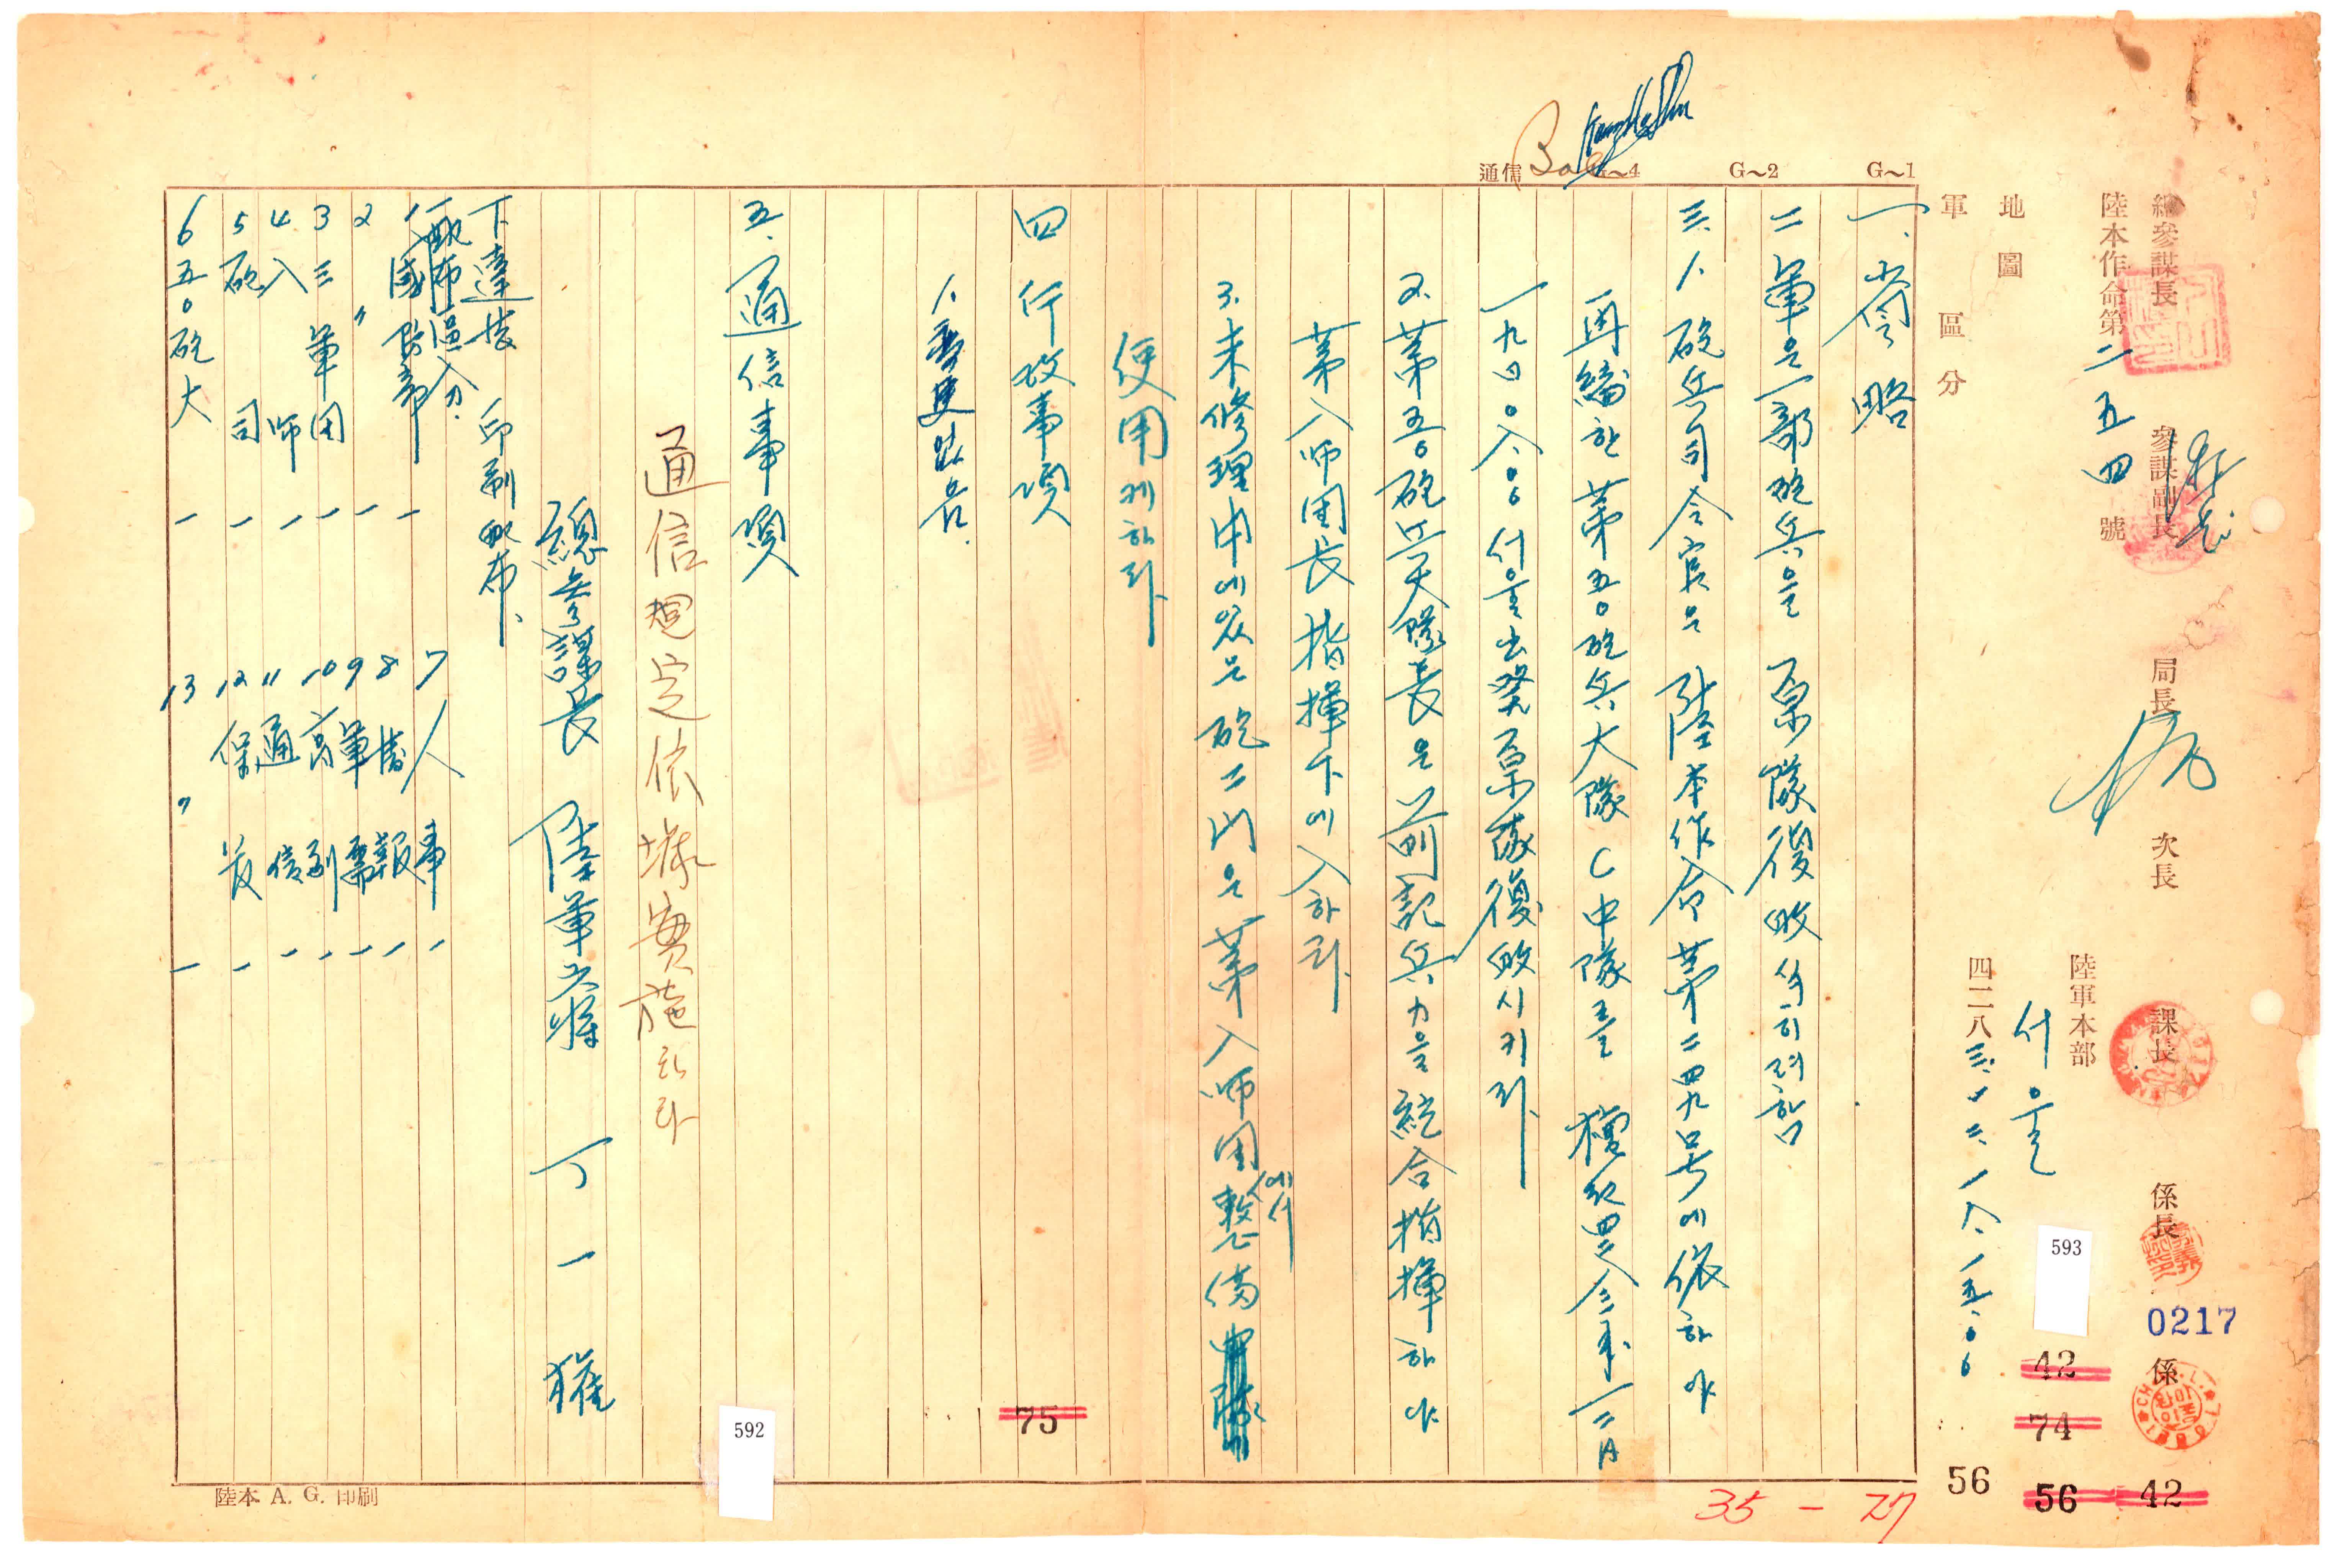 總參謀長 參謀副長 局長 次長 課長 係長 係
陸本作命第二五四號
陸軍本部
서울
地圖
四二八三.一二.一八.一五.〇〇
軍隊區分
通信 G~4 G~2 G~1
一、省略
二 軍은 一部砲兵을 原隊復收식히려함
三. 1. 砲兵司令官은 陸本作命第二四九号에 依하야
再編한 第五〇砲兵大隊 C中隊를 檀紀四二八三年一二月
一九日〇八.〇〇 서울出發 原隊復收시키라
2. 第五〇砲兵大隊長은 前記兵力을 統合指揮하야
第八師團長指揮下에 入하라
3. 未修理中에있은 砲二門은 第八師團에서 整備
使用케하라
四 行政事項
五. 通信事項
通信規定依據實施하라
總參謀長 陸軍少將 丁一權
下達法 印刷配布.
配布區分.
1 國防部 一
2 〃 一
3 三軍団 一
4 八師 一
5 砲司 一
6 五〇砲大 一
7 人事 一
8 情報 一
9 軍需 一
10 高副 一
11 通信 一
12 保發 一
13 〃 一
陸本 A. G. 印刷
593
592
0217
42
74
56
42
56
75
35 - 27